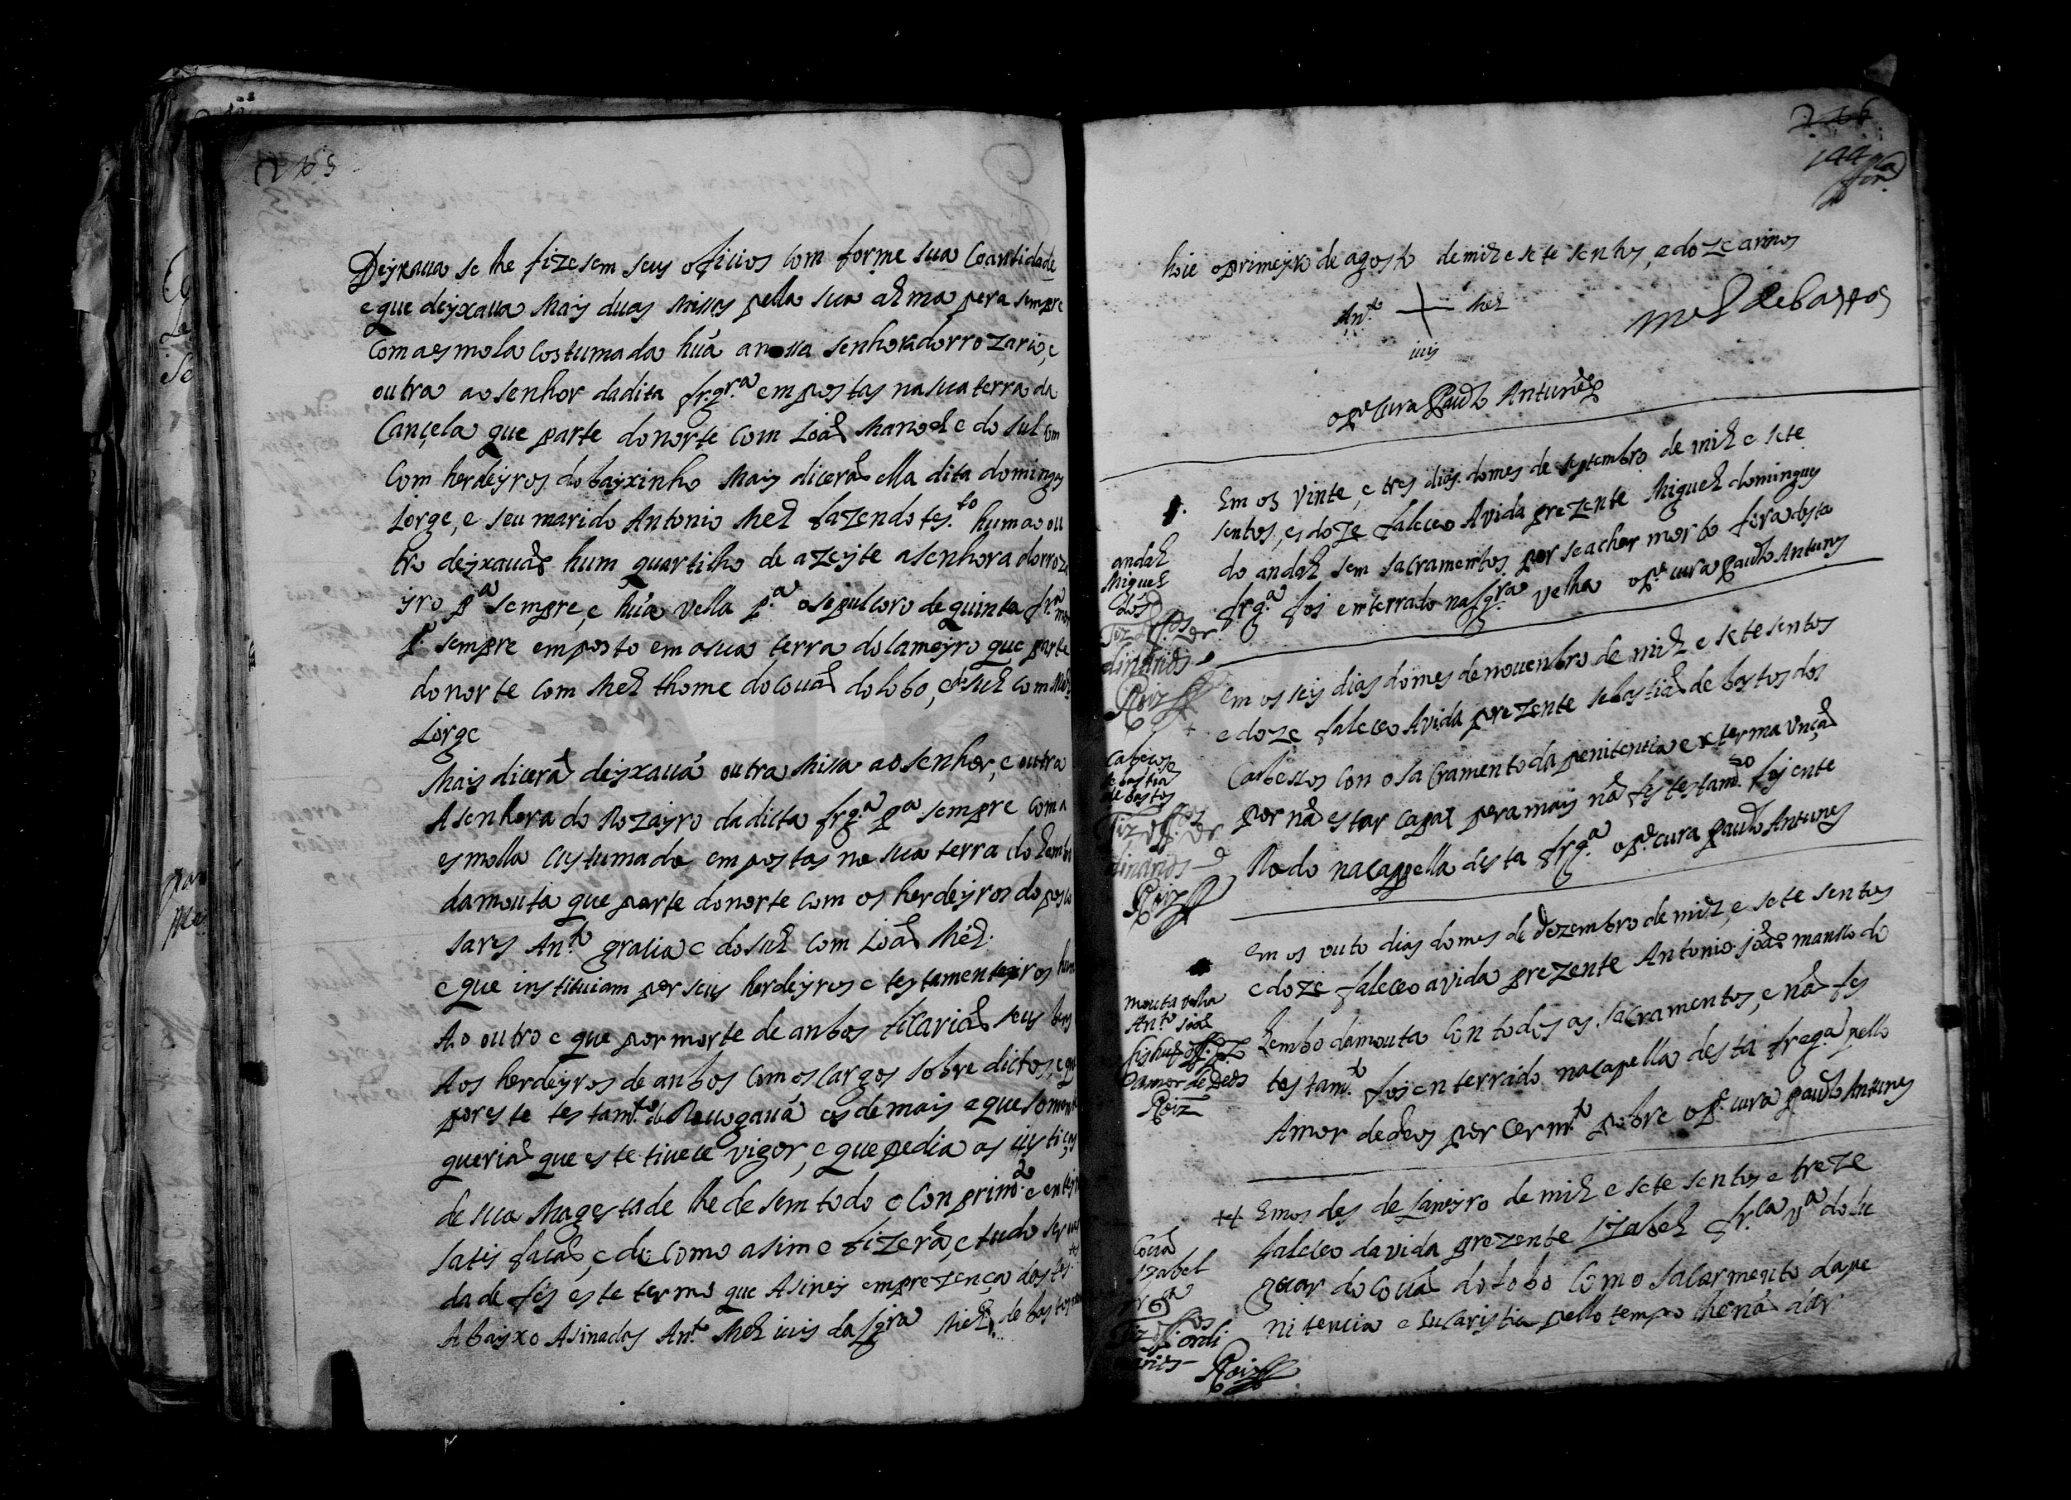 Deyxaua se lhe fizesem seus oficios com forme sua Coantidade
e que deyxaua Mais duas Missas pella sua alma pera sempre
Com a esmola Costumada huã a nossa senhora dorrozario, e
outra ao senhor da dita frgr.ª empostas na sua terra da
Cançela que parte do norte com Loaõ Manoel e do sul com
Com herdeyros do bayxinho Mais diceraõ ella dita domingas
Lorge, e seu marido Antonio Mel fazendo tes.to hum ao ou
tro deyxauaõ hum quartilho de azeyte a senhora dorroza
yro p.ª sempre, e huã vella p.ª o sepulcoro de quinta fr.ª mor
p.ª sempre emposto em a sua terra do lameyro que parte
do norte com Mel thome do Couaõ do lobo, e do sul com
Lorge
Mais diceraõ deyxauã outra Missa ao senhor, e outra
A senhora do Rozayro da dicta frg.ª p.ª sempre com a
esmolla Custumada empostas na sua terra do Lembo
da mouta que parte do norte com os herdeyros do
Ant.º gracia e do sul com Loaõ Mel.
e que instituiam por seus herdeyros e testamenteyros hum
Ao outro e que por morte de anbos ficariaõ seus bens
Aos herdeyros de anbos com os Cargos sobre dictos, e que
por este testam.to Reuogauã os de mais e que somente
queriaõ que este tiuece vigor, e que pedia as iustiças
de sua Magestade lhe desem todo o Conprim.to e
satis facaõ, e de como asim o fizeraõ, e tudo ser
dade fes este termo que Asiney em prezença das tes.tas
Abayxo Asinadas Ant.º Mel iuis da Igra Mel de bastos
hoie o primeyro de agosto de mil e sete sentos, e doze annos
Ant.º Mel
iuis
Mel de Bastos
o p.e Cura Paulo Antunes
Em os vinte, e tres dias do mes de septembro de mil e sete
sentos, e doze faleceo A vida prezente Miguel domingues
do andal sem sacramentos por se achar morto fora desta
frg.ª foj enterrado na Igra velha o p.e cura Paulo Antunes
andal
Miguel
dos
Em os seis dias do mes de nouenbro de mil e sete sentos
e doze faleceo A vida prezente sebastiaõ de bastos dos
Cabessos Con o sacramento da penitencia e exterma vnçaõ
por naõ estar capaz pera mais naõ fes testam.to foj ente
Rado na cappella desta frg.ª o p.e cura Paulo Antunes
Cabeços
sebastiaõ
de bastos
Em os outo dias do mes de dezembro de mil, e sete sentos
e doze faleceo a vida prezente Antonio Joaõ mansso do
Lembo da mouta Con todos os sacramentos, e naõ fes
testam.to foj enterrado na capella desta freg.ª pello
Amor de deos por ser m.to pobre o p.e cura Paulo Antunes
mouta velha
Ant.º Joaõ
Amor de Deos
Roiz
Em os des de Laneyro de mil e sete sentos e treze
faleceo da vida prezente Izabel fr.ca v.ª do lu
guar do Couaõ do lobo Com o sacarmento da pe
nitencia e Eucaristia pello tempo lhe naõ dar
Couaõ
Izabel
fr.ca
Roiz